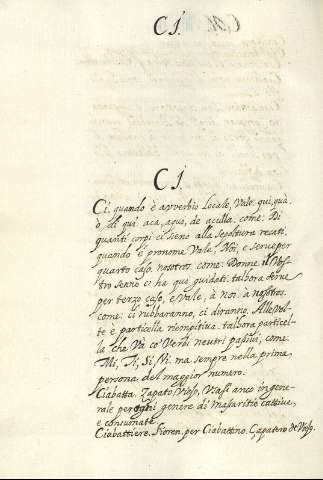 CI.
CI.
Ci. quando è avverbio locale, Vale. qui, quà,
ò di quì. aca, aqui, de aculla. come: Di
quanti corpi ci sieno alla sepoltura recati.
quando è pronome Vale Noi, e serue per
quarto caso. nosotros come: Donne il Vos-
tro senno ci ha quì guidati. talhora serue
per terzo caso, e Vale, à noi. à nosotros.
come: ci rubbaranno, ci diranno. Alle Vol-
te è particella riempitiua. talhora particel-
la che Và co' Verbi neutri passiui, come
Mi, Ti, Si, Vi. ma sempre nella prima
persona del maggior numero.
Ciabatta. Zapato Viejo, Vsasi anco in gene-
rale per ogni genere di Masaritie cattiue,
e consumate.
Ciabattiere. Fioren. per Ciabattino. Çapatero de Viejo.